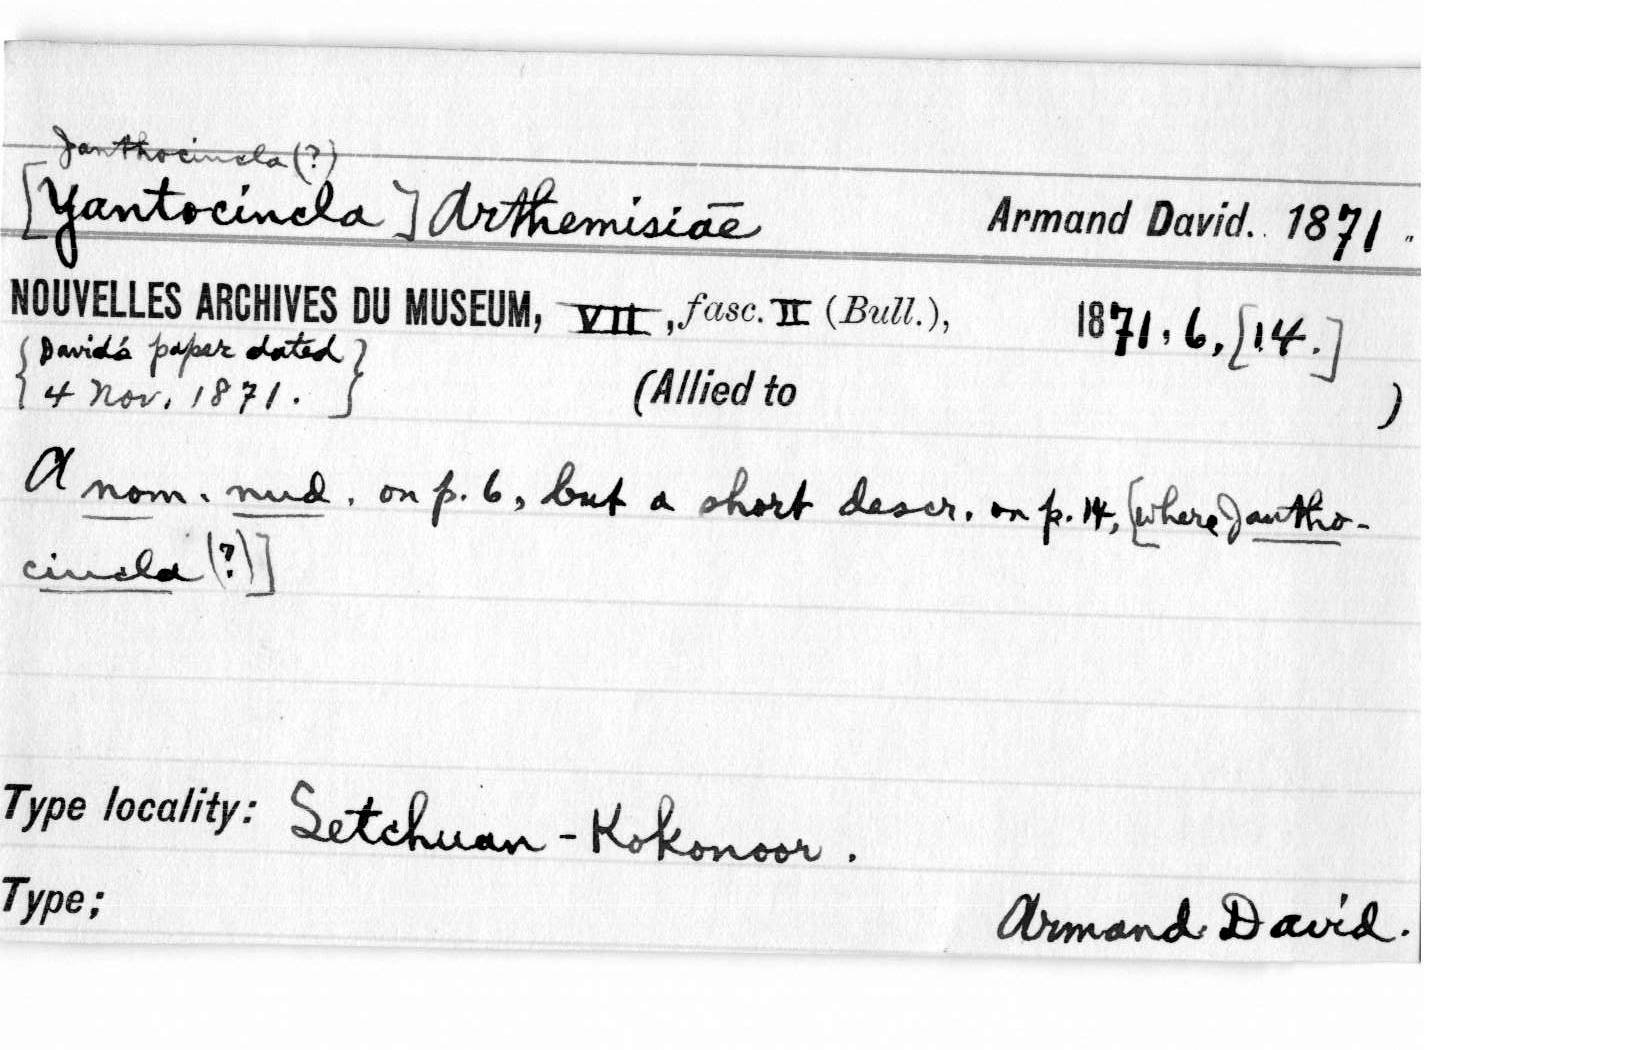 Janthocincla (?)
[Yantocincla] Arthemisiae Armand David. 1871.
NOUVELLES ARCHIVES DU MUSEUM, VII, fasc. II (Bull.), 1871, 6, [14.]
{David's paper dated
4 Nov. 1871.} (Allied to )
A nom. nud. on p. 6, but a short descr. on p. 14, [where Jantho-
cincla (?)]
Type locality: Setchuan - Kokonoor.
Type; Armand David.